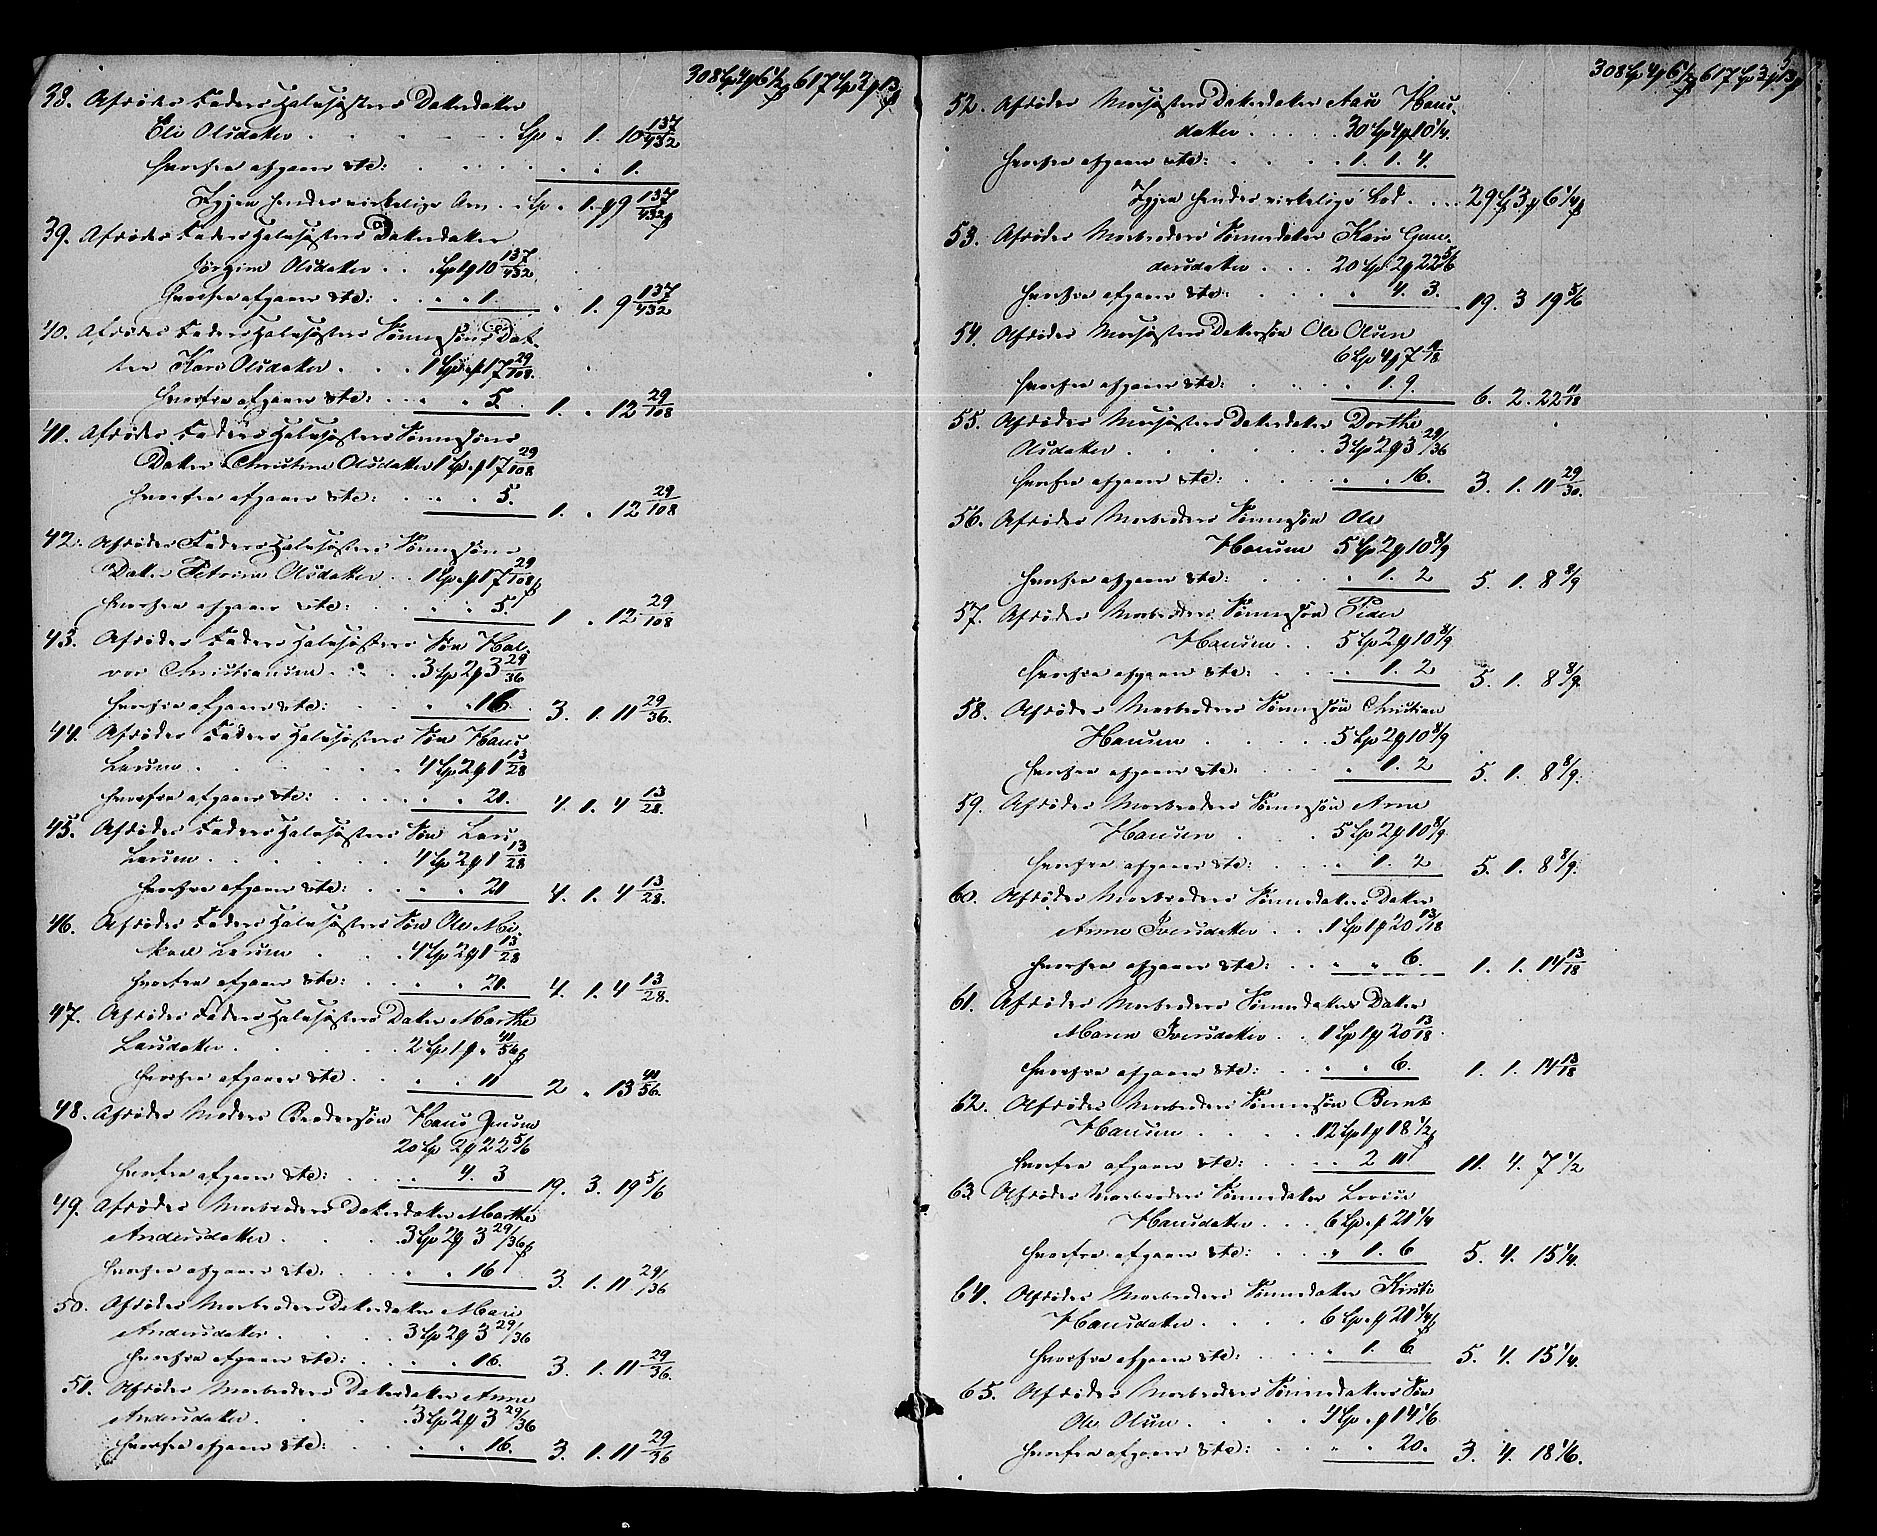 308 Sp 4 ß 6 1/2 617 Sp 3 ß 13 ß
38. Afdødes Faders Halvsøsters Datterdatter
Eli Olsdatter . . . . Sp „ 1. 10 137/432
hvorfra afgaaer &tc: . . . . „ „ 1.
Igjen hendes virkelige Arv . „ Sp „ 1. ß 9 137/432 ß
39. Afdødes Faders Halvsøsters Datterdatter
Jørgine Olsdatter . . „ Sp 1 ß 10 137/432
hvorfra afgaaer &tc: . . „ „ 1. „ 1. 9 137/432
40. Afdødes Faders Halvsøsters Sønnesøns Dat-
ter Kari Olsdatter . . . 1 Sp „ ß 17 29/108.
hvorfra afgaaer &tc: . . „ „ 5. 1. „ 12 29/108
41. Afdødes Faders Halvsøsters Sønnesøns
Datter Christine Olsdatter 1 Sp „ ß 17 29/108
hvorfra afgaaer &tc: . . „ „ 5. 1. „ 12 29/108
42. Afdødes Faders Halvsøsters Sønnesøns
Datter Petrine Olsdatter . . 1 Sp „ ß 17 29/108 ß
hvorfra afgaaer &tc: . . „ „ 5 1 „ 12 29/108
43. Afdødes Faders Halvsøsters Søn Hal-
vor Christiansen . . . 3 Sp 2 ß 3 29/36
hvorfra afgaaer &tc: . . „ 16 3. 1. 11 29/36.
44. Afdødes Faders Halvsøsters Søn Hans
Larsen . . . . . 4 Sp 2 ß 1 13/28
hvorfra afgaaer &tc: . . . . „ 20. 4. 1. 4 13/28.
45. Afdødes Faders Halvsøsters Søn Lars
Larsen . . . . . 4 Sp 2 ß 1 13/28
hvorfra afgaaer &tc: . . „ „ 20 4. 1. 4 13/28.
46. Afdødes Faders Halvsøsters Søn Ole Mi-
kael Larsen . . . 4 Sp 2 ß 1 13/28
hvorfra afgaaer &tc: . . „ „ 20. 4. 1. 4 13/28.
47. Afdødes Faders Halvsøsters Datter Marthe
Larsdatter . . . . . 2 Sp 1 ß „ 41/56 ß
hvorfra afgaaer &tc . . „ „ 11 2 „ 13 41/56.
48. Afdødes Moders Brodersøn Hans Jensen
20 Sp 2 ß 22 5/6
hvorfra afgaaer &tc: . . . 4. 3 19. 3. 19 5/6
49. Afdødes Morbroders Datterdatter Marthe
Andersdatter . . . . 3 Sp 2 ß 3 29/36 ß
hvorfra afgaaer &tc: . . . „ 16 3. 1. 11 29/36
50. Afdødes Morbroders Datterdatter Mari
Andersdatter . . . . 3 Sp 2 ß 3 29/36
hvorfra afgaaer &tc: . . . „ 16. 3. 1. 11 29/36.
51. Afdødes Morbroders Datterdatter Anne
Andersdatter . . . . 3 Sp 2 ß 3 29/36
hvorfra afgaaer &tc: . . „ „ 16. 3. 1. 11 29/36
5
308 Sp 4 ß 6 1/2 ß 617 Sp 3 ß 13 ß
52. Afdødes Morsøsters Datterdatter Hans-
datter . . . . 30 Sp 4 ß 10 1/4.
hvorfra afgaaer &tc: . . . . 1. 1. 4.
Igjen hendes virkelige Lod . . . 29 Sp 3 ß 6 1/4 ß
53. Afdødes Morbroders Sønnedatter Kari Gun-
dersdatter . . . 20 Sp 2 ß 22 5/6
hvorfra afgaaer &tc: . . . „ 4. 3. 19. 3 19 5/6
54. Afdødes Morsøsters Dattersøn Ole Olsen
6 Sp 4 ß 7 11/18
hvorfra afgaaer &tc: . . . . 1. 9. 6. 2. 22 11/18
55. Afdødes Morsøsters Datterdatter Dorthe
Olsdatter . . . . . . 3 Sp 2 ß 3 29/36
hvorfra afgaaer &tc: . . . „ „ 16. 3. 1. 11 29/30.
56. Afdødes Morbroders Sønnesøn Ole
Hansen 5 Sp 2 ß 10 8/9
hvorfra afgaaer &tc: . . . „ 1. 2 5. 1. 8 8/9
57. Afdødes Morbroders Sønnesøn Peder
Hansen . . 5 Sp 2 ß 10 8/9
hvorfra afgaaer &tc: . . . „ 1. 2 5. 1. 8 8/9.
58. Afdødes Morbroders Sønnesøn Christian
Hansen . . . . . 5 Sp 2 ß 10 8/9
hvorfra afgaaer &tc: . . . „ 1. 2 5. 1. 8 8/9.
59. Afdødes Morbroders Sønnesøn Arne
Hansen . . . 5 Sp 2 ß 10 8/9.
hvorfra afgaaer &tc: . . . „ 1. 2 5. 1. 8 8/9.
60. Afdødes Morbroders Sønnedatters Datter
Anne Iversdatter . . . 1 Sp 1 ß 20 13/18
hvorfra afgaaer &tc: . . „ „ 6. 1. 1. 14 13/18
61. Afdødes Morbroders Sønnedatters Datter
Maren Iversdatter . . 1 Sp 1 ß 20 13/18.
hvorfra afgaaer &tc: . . . „ „ 6. 1. 1. 14 13/18
62. Afdødes Morbroders Sønnesøn Bernt
Hansen . . . . . 12 Sp 1 ß 18 1/2 ß
hvorfra afgaaer &tc: . . . . 2 11 11. 4. 7 1/2
63. Afdødes Morbroders Sønnedatter Lovise
Hansdatter . . . 6 Sp „ ß 21 1/4
hvorfra afgaaer &tc: . . . „ 1. 6 5. 4. 15 1/4.
64. Afdødes Morbroders Sønnedatter Kirsti
Hansdatter . . . . 6 Sp „ ß 21 1/4 ß
hvorfra afgaaer &tc: . . . „ 1. 6 5. 4. 15 1/4.
65. Afdødes Morbroders Sønnedatters Søn
Ole Olsen . . . . . 4 Sp „ ß 14 1/6
hvorfra afgaaer &tc: . . . „ „ 20. 3. 4. 18 1/6.